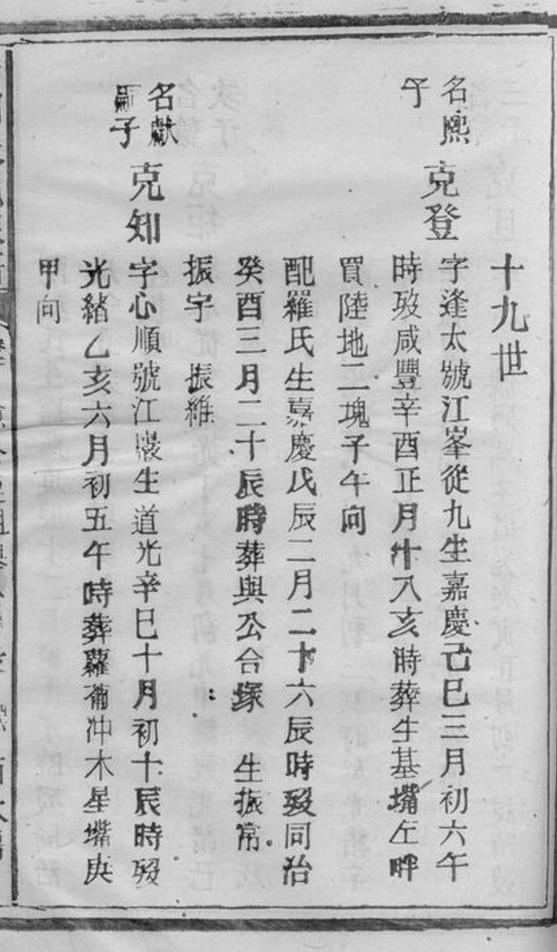 十九世
名熈子 克登 字逢太號江峯從九生嘉慶己巳三月初六午
時歿咸豐辛酉正月十八亥時葬生基嘴左畔
買陸地二塊子午向
配羅氏生嘉慶戊辰二月二十六辰時歿同治
癸酉三月二十辰時葬與公合塚 生振常
振宇 振維
名獻嗣子 克知 字心順號江巖生道光辛巳十月初十辰時歿
光緒乙亥六月初五午時葬蘿蔔冲木星嘴庚
甲向